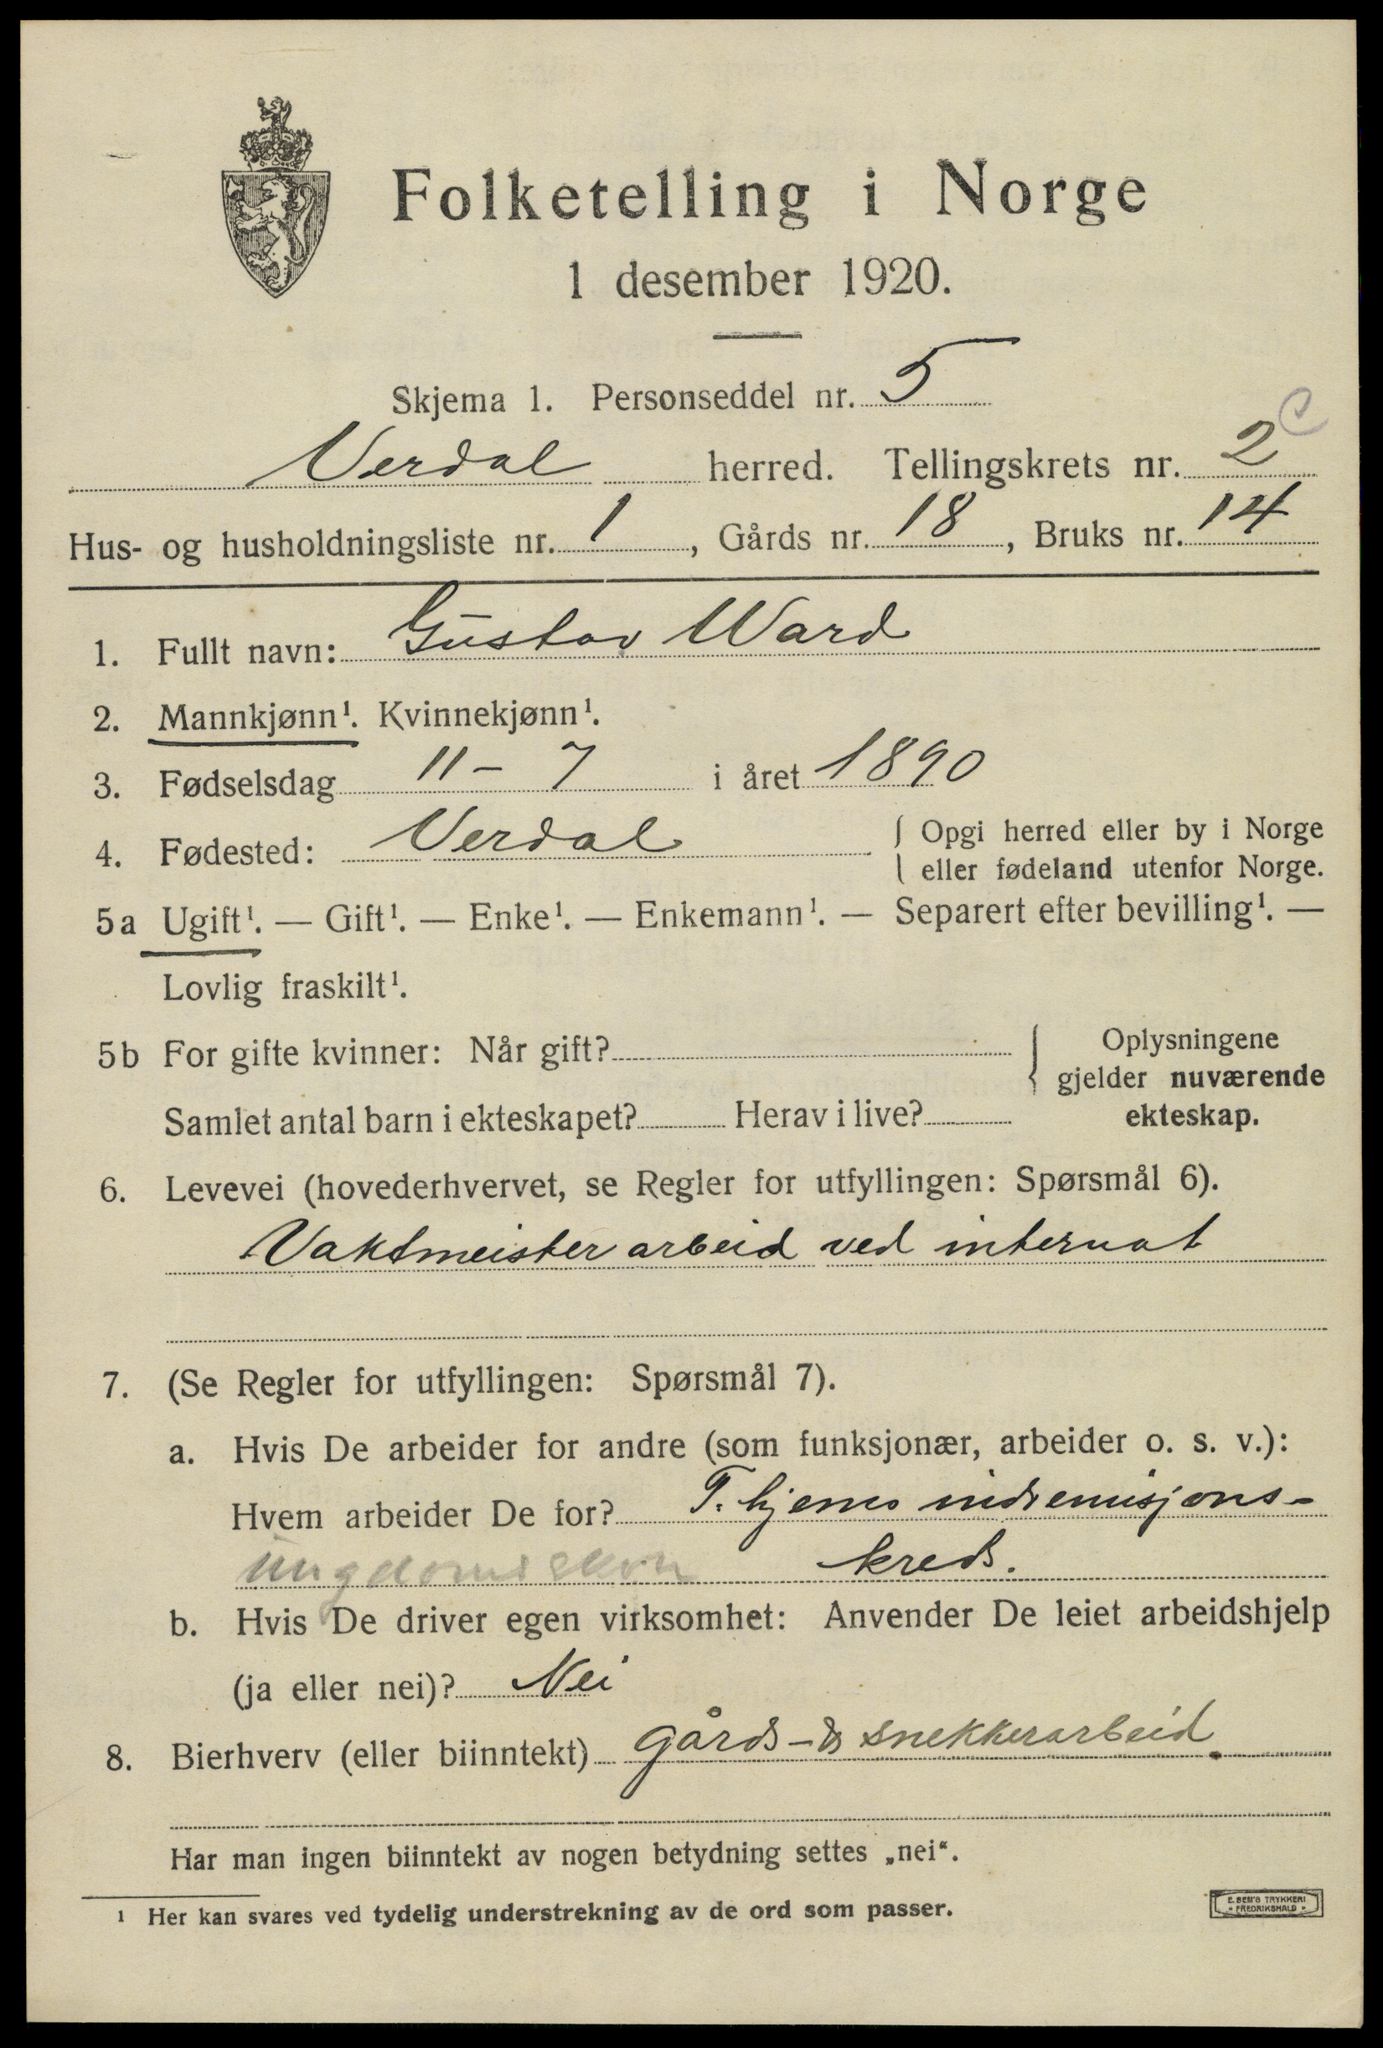 Folketelling i Norge
1 desember 1920.
Skjema 1. Personseddel nr. 5
Verdal herred. Tellingskrets nr. 2 C
Hus- og husholdningsliste nr. 1, Gårds nr. 18, Bruks nr. 14
1. Fullt navn: Gustav Ward
2. Mannkjønn¹. Kvinnekjønn¹.
3. Fødselsdag 11 - 7 i året 1890
4. Fødested: Verdal { Opgi herred eller by i Norge
eller fødeland utenfor Norge.
5a Ugift¹. — Gift¹. — Enke¹. — Enkemann¹. — Separert efter bevilling¹. —
Lovlig fraskilt¹.
5b For gifte kvinner: Når gift? { Oplysningene
gjelder nuværende
Samlet antal barn i ekteskapet? Herav i live? ekteskap.
6. Levevei (hovederhvervet, se Regler for utfyllingen: Spørsmål 6).
Vaktmeister arbeid ved internat
7. (Se Regler for utfyllingen: Spørsmål 7).
a. Hvis De arbeider for andre (som funksjonær, arbeider o. s. v.):
Hvem arbeider De for? T. hjems indremisjons-
kreds.
b. Hvis De driver egen virksomhet: Anvender De leiet arbeidshjelp
(ja eller nei)? Nei
8. Bierhverv (eller biinntekt) gårds- & snekkerarbeid.
Har man ingen biinntekt av nogen betydning settes „nei“.
¹ Her kan svares ved tydelig understrekning av de ord som passer.
E. SEM'S TRYKKERI
FREDRIKSHALD